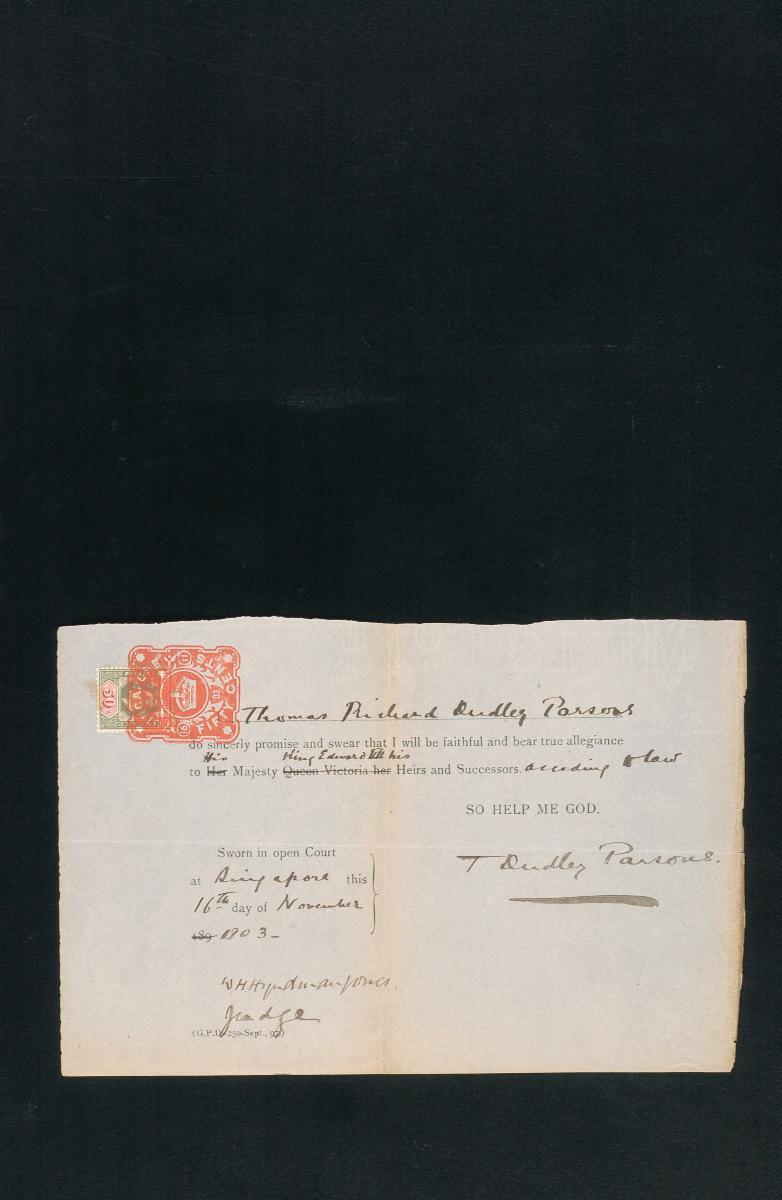 50c
FIFTY CENTS
11
03
16
Thomas Richard Dudley Parsons
do sincerly promise and swear that I will be faithful and bear true allegiance
His King Edward VII his
to Her Majesty Queen Victoria her Heirs and Successors. according to law
SO HELP ME GOD.
Sworn in open Court
at Singapore this
16th day of November
189 1903-
T Dudley Parsons.
W H Hyndman Jones.
Judge
(G.P.D.-250-Sept., 97)